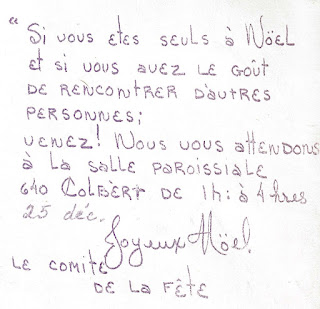 “Si vous etes seuls à Nöel
et si vous avez le goût
de rencontrer d'autres
personnes;
venez! Nous vous attendons
à la salle paroissiale
640 Colbert de 1h: à 4 hres
25 déc.
Joyeux Nöel.
Le comité
de la fête